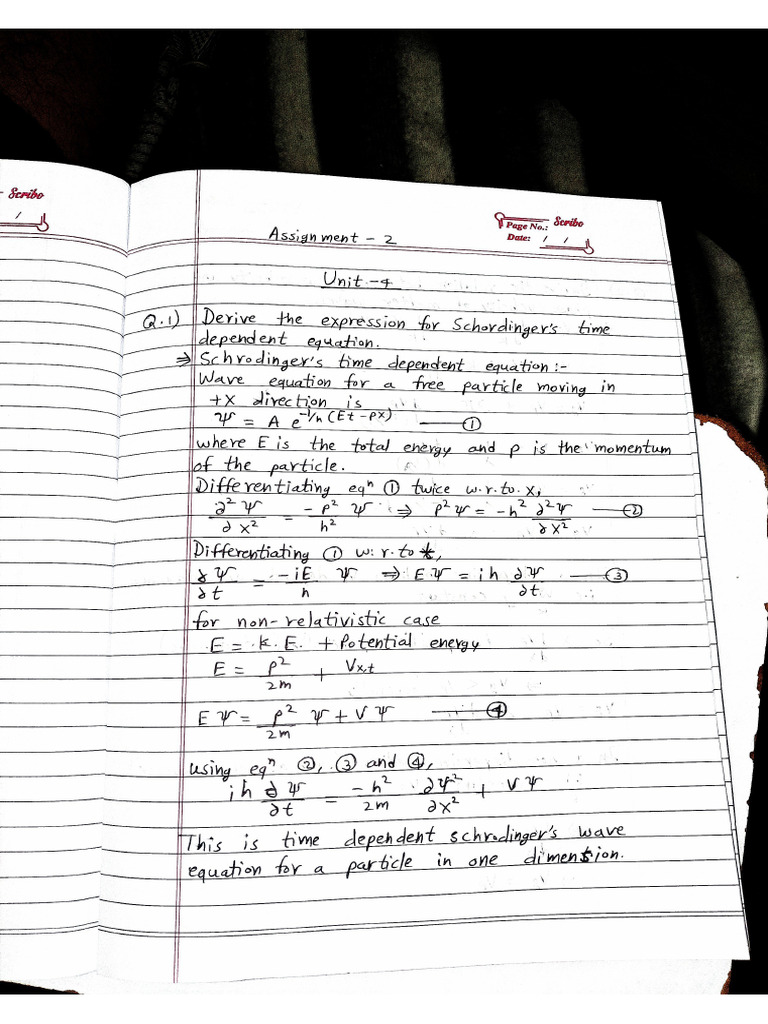 Scribo
/
Scribo
Page No.:
Date: / /
Assignment - 2
Unit - 4
Q.1) Derive the expression for Schordinger's time
dependent equation.
⇒ Schrodinger's time dependent equation :-
Wave equation for a free particle moving in
+X direction is
Ψ = A e^-i/h (Et - px) —— ①
where E is the total energy and p is the momentum
of the particle.
Differentiating eqⁿ ① twice w.r.to. x,
∂²Ψ/∂x² = -p²/h² Ψ ⇒ p²Ψ = -h² ∂²Ψ/∂x² —— ②
Differentiating ① w.r.to t,
∂Ψ/∂t = -iE/h Ψ ⇒ EΨ = ih ∂Ψ/∂t —— ③
for non-relativistic case
E = K.E. + Potential energy
E = p²/2m + Vx,t
EΨ = p²/2m Ψ + VΨ —— ④
using eqⁿ ②, ③ and ④,
ih ∂Ψ/∂t = -h²/2m ∂Ψ²/∂x² + VΨ
This is time dependent schrodinger's wave
equation for a particle in one dimension.